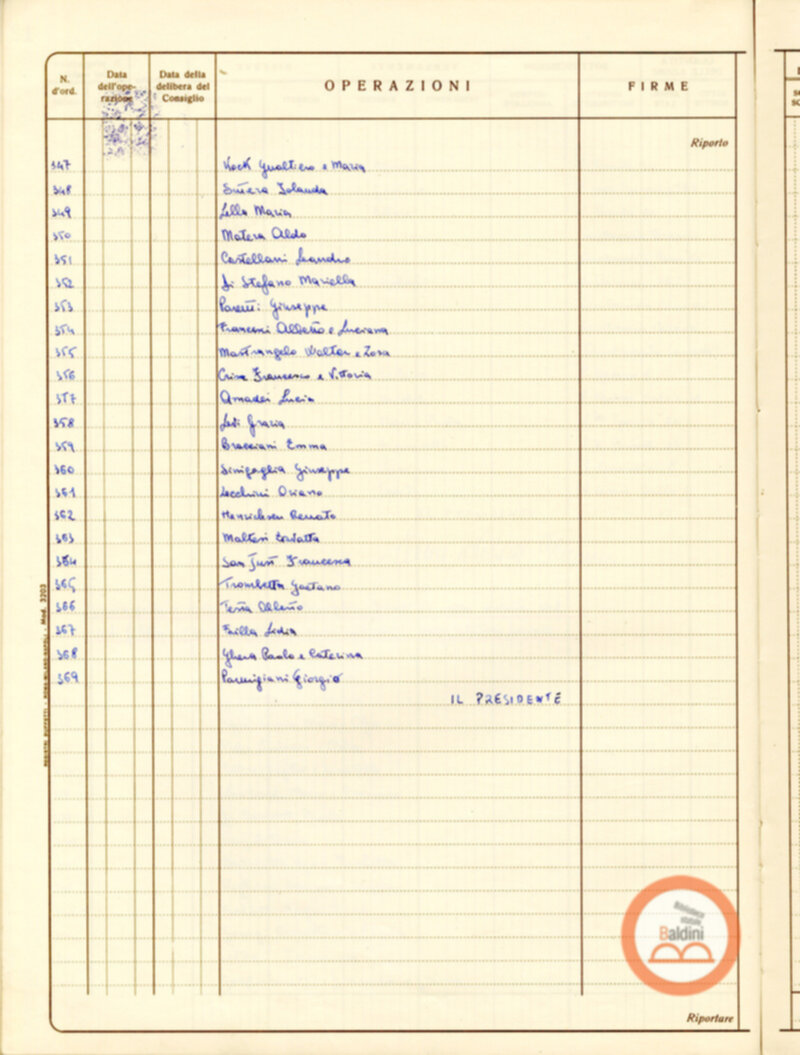 N. d'ord.
Data dell'operazione
Data della delibera del Consiglio
OPERAZIONI
FIRME
Riporto
347 Kock Gualtiero e Maria
348 Iolanda
349 Lello Maria
350 Matera Aldo
351 Castellani Leandro
352 Di Stefano Mariella
353 Giuseppe
354 Franconi Alberto e Luciana
355 Mastrangelo Walter e Zosa
356 Crisa Francesco e Vittoria
357 Amadei Lucia
358 Grazia
359 Bracciani Emma
360 Sinigaglia Giuseppe
361 Lecchini Oriano
362 Henrichsen Renato
363 Maltesi
364 San Just Francesca
365 Trombetta Gaetano
366 Testa Alberto
367 Failla Lidia
368 Ghera Paolo e Caterina
369 Parmigiani Giorgio
IL PRESIDENTE
Biblioteca statale Baldini
Riportare